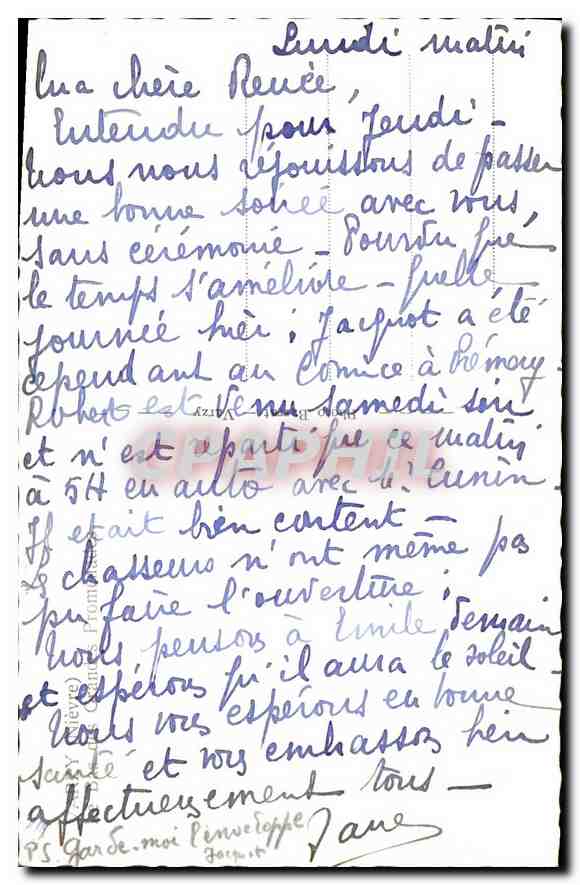 Lundi matin
Ma chère Renée,
Entendu pour Jeudi –
Nous nous réjouissons de passer
une bonne soirée avec vous,
sans cérémonie – Pourvu que
le temps s'améliore – quelle
journée hier ; Jacquot a été
cependant au Comice à Prémery –
Robert est venu samedi soir
et n'est reparti que ce matin
à 5H en auto avec Mr
Il était bien content –
Les chasseurs n'ont même pas
pu faire l'ouverture ;
Nous pensons à Emile demain
et espérons qu'il aura le soleil –
Nous vous espérons en bonne
santé et vous embrassons bien
affectueusement tous –
Jane
PS. Garde-moi l'enveloppe
Jacquot
CPAPHIL
Photo Varzy
(Nièvre)
des Grandes Promenades